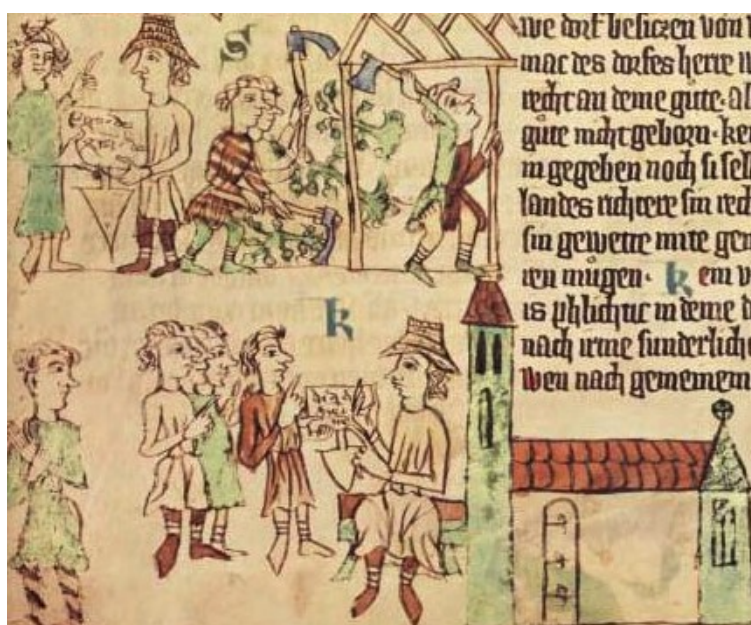 S
k
we dorf besiczen von
mac des dorfes herre
recht an deme gute· al
gute nicht geborn· ke
in gegeben noch si sel
landes richtere sin rech
sin gewette mite gen
ren mugen· k em
is phlichtic in deme d
nach irme sunderliche
wen nach gemeinem